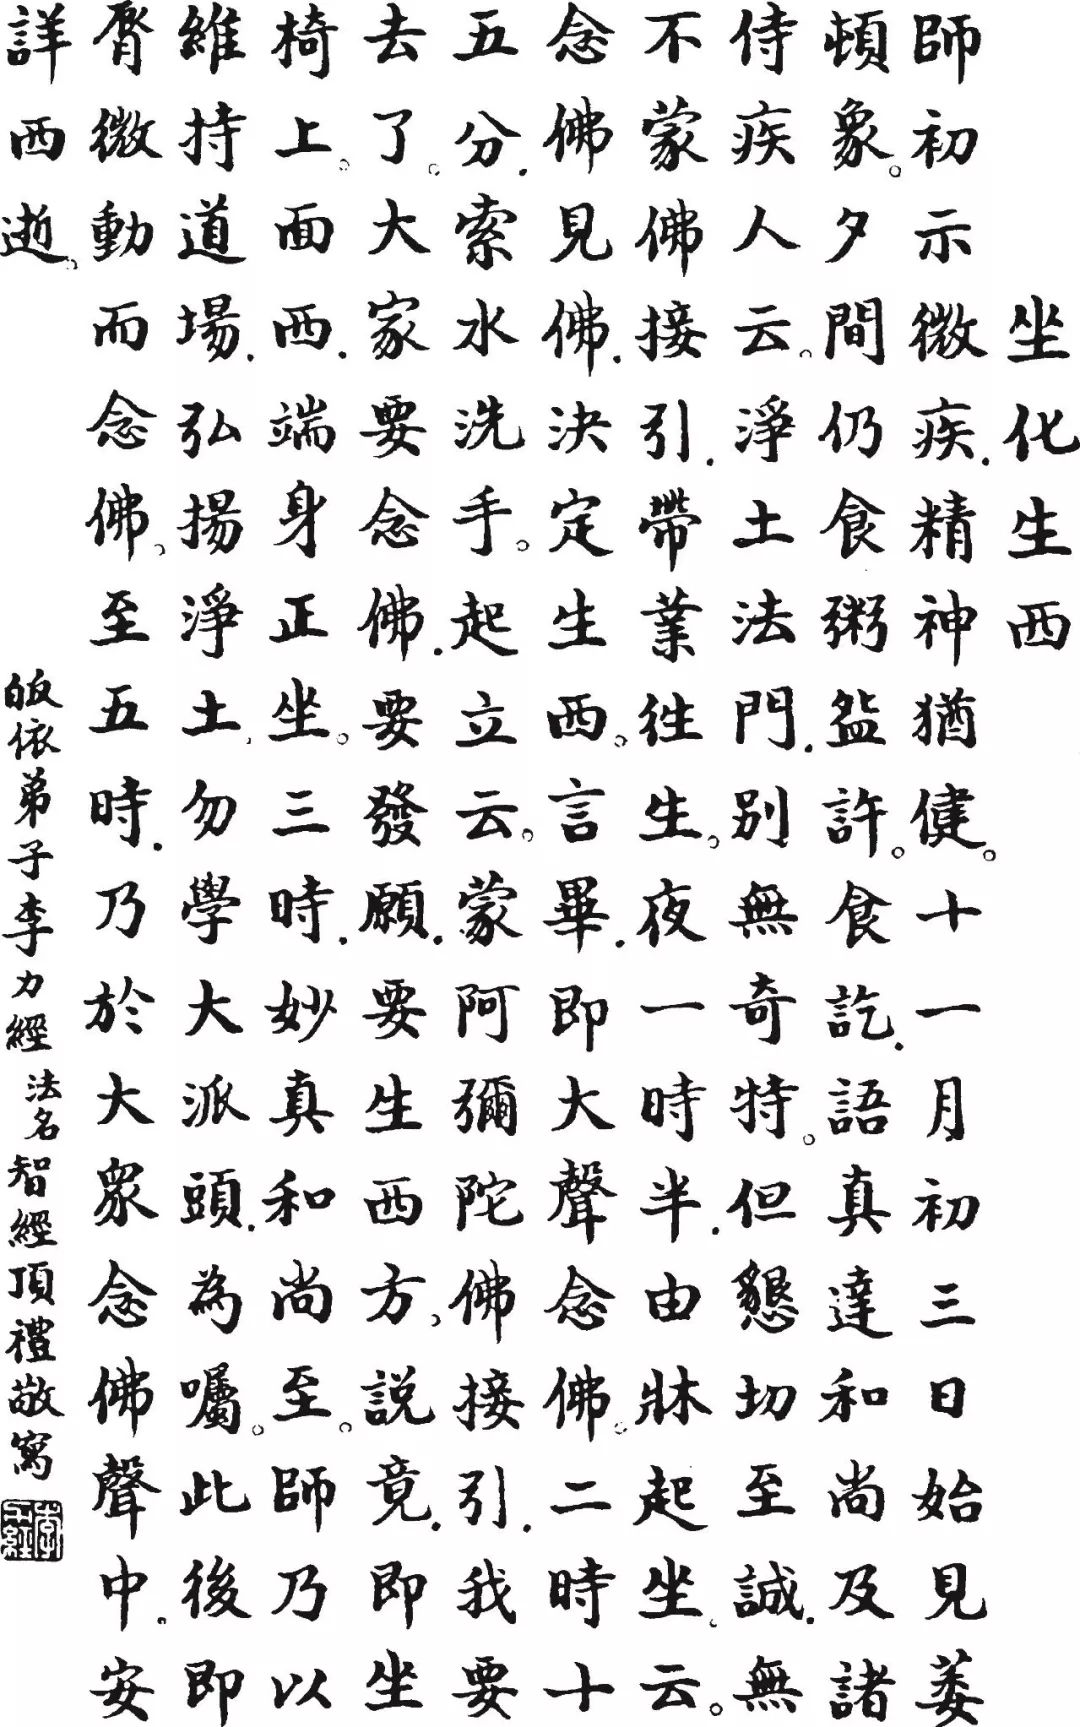 坐化生西
師初示微疾.精神猶健。十一月初三日始見萎
頓象。夕間仍食粥盌許。食訖.語真達和尚及諸
侍疾人云。淨土法門.別無奇特。但懇切至誠.無
不蒙佛接引.帶業往生。夜一時半.由牀起坐。云。
念佛見佛.決定生西。言畢.即大聲念佛。二時十
五分.索水洗手。起立云。蒙阿彌陀佛接引.我要
去了。大家要念佛.要發願.要生西方。説竟.即坐
椅上。面西.端身正坐。三時.妙真和尚至。師乃以
維持道場.弘揚淨土.勿學大派頭.為囑。此後即
脣微動而念佛。至五時.乃於大眾念佛聲中.安
詳西逝。
皈依弟子李力經法名智經頂禮敬寫